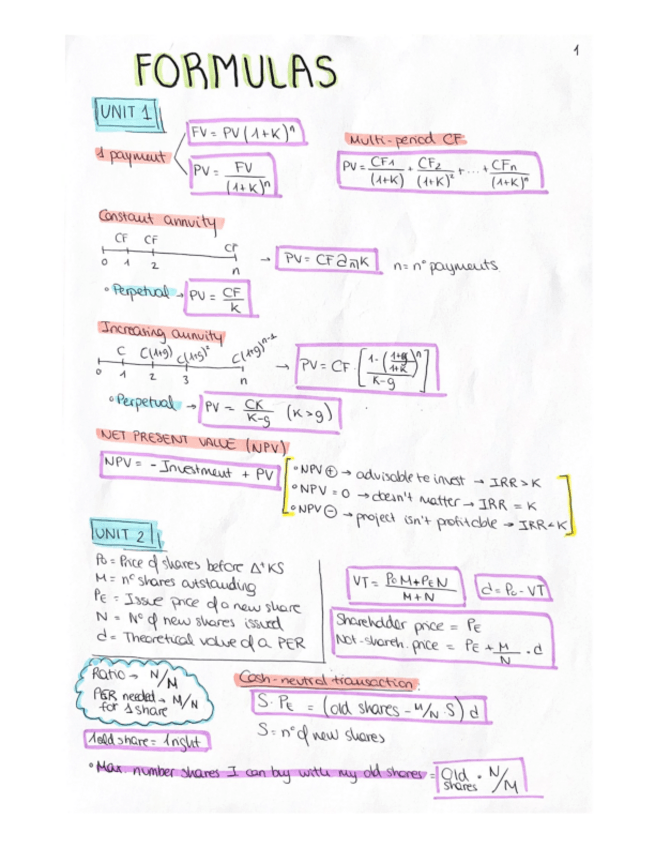 1
FORMULAS
UNIT 1
1 payment
FV = PV (1+K)^n
PV = FV / (1+K)^n
Multi-period CF
PV = CF1/(1+K) + CF2/(1+K)^2 + ... + CFn/(1+K)^n
Constant annuity
CF CF CF
0 1 2 n
→ PV = CF a n̅| K n = nº payments
• Perpetual → PV = CF/K
Increasing annuity
C C(1+g) C(1+g)^2 C(1+g)^n-1
0 1 2 3 n
→ PV = CF · [ (1 - ((1+g)/(1+K))^n) / (K-g) ]
• Perpetual → PV = CK/(K-g) (K>g)
NET PRESENT VALUE (NPV)
NPV = - Investment + PV
• NPV ⊕ → advisable to invest → IRR > K
• NPV = 0 → doesn't matter → IRR = K
• NPV ⊖ → project isn't profitable → IRR < K
UNIT 2
P0 = Price of shares before Δ+ KS
M = nº shares outstanding
PE = Issue price of a new share
N = Nº of new shares issued
d = Theoretical value of a PER
VT = (P0 M + PE N) / (M+N)
d = P0 - VT
Shareholder price = PE
Not-shareh. price = PE + M/N · d
Ratio → N/M
PER needed → M/N
for 1 share
1 old share = 1 right
Cash-neutral transaction:
S · PE = (old shares - M/N · S) d
S = nº of new shares
• Max. number shares I can buy with my old shares = Old shares · N/M